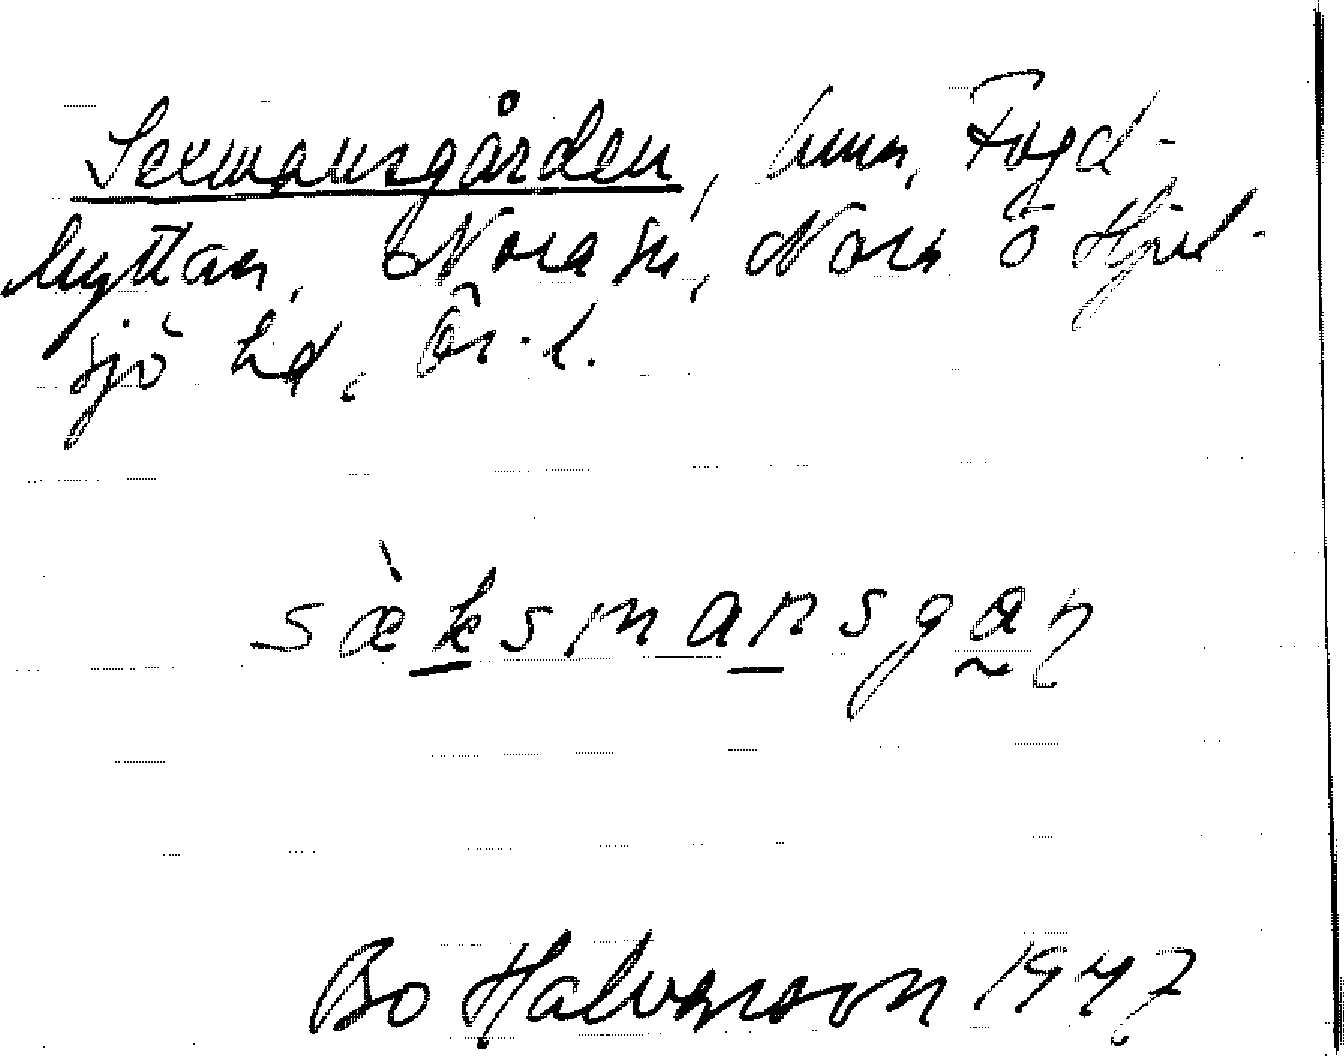 Sexmansgården, hmn, Fogd-
hyttan, Nora sn, Nora o Hjul-
sjö hd, Ör. l.
sæ̀ksmansgan
Bo Halvarsson 1947